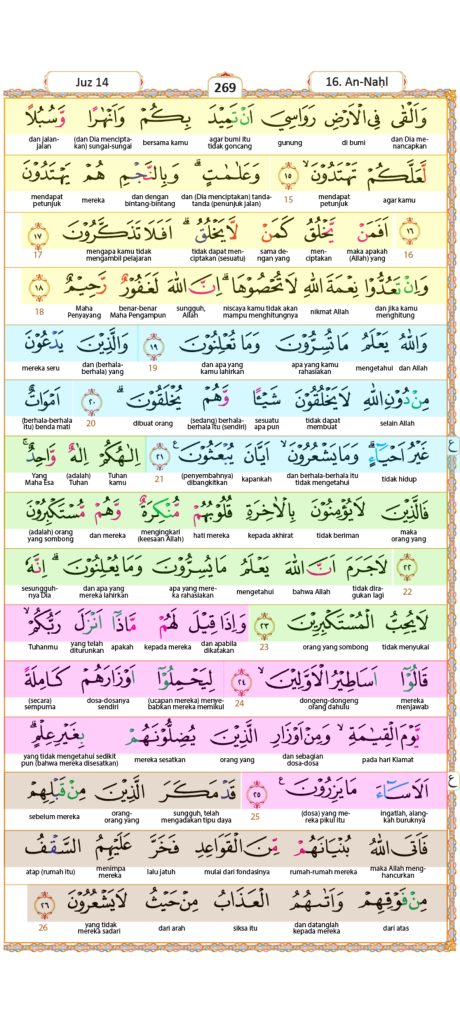 Juz 14
269
16. An-Naḥl
وَاَلْقٰى فِى الْاَرْضِ رَوَاسِيَ اَنْ تَمِيْدَ بِكُمْ وَاَنْهٰرًا وَّسُبُلًا
dan Dia menancapkan di bumi gunung agar bumi itu tidak goncang bersama kamu (dan Dia menciptakan) sungai-sungai dan jalan-jalan
لَّعَلَّكُمْ تَهْتَدُوْنَۙ ١٥ وَعَلٰمٰتٍۗ وَبِالنَّجْمِ هُمْ يَهْتَدُوْنَ
agar kamu mendapat petunjuk 15 dan (Dia menciptakan) tanda-tanda (penunjuk jalan) dan dengan bintang-bintang mereka mendapat petunjuk
١٦ اَفَمَنْ يَّخْلُقُ كَمَنْ لَّا يَخْلُقُۗ اَفَلَا تَذَكَّرُوْنَ ١٧
16 maka apakah (Allah) yang menciptakan sama dengan yang tidak dapat menciptakan (sesuatu) mengapa kamu tidak mengambil pelajaran 17
وَاِنْ تَعُدُّوْا نِعْمَةَ اللّٰهِ لَا تُحْصُوْهَاۗ اِنَّ اللّٰهَ لَغَفُوْرٌ رَّحِيْمٌ ١٨
dan jika kamu menghitung nikmat Allah niscaya kamu tidak akan mampu menghitungnya sungguh, Allah benar-benar Maha Pengampun Maha Penyayang 18
وَاللّٰهُ يَعْلَمُ مَا تُسِرُّوْنَ وَمَا تُعْلِنُوْنَ ١٩ وَالَّذِيْنَ يَدْعُوْنَ
dan Allah mengetahui apa yang kamu rahasiakan dan apa yang kamu lahirkan 19 dan (berhala-berhala) yang mereka seru
مِنْ دُوْنِ اللّٰهِ لَا يَخْلُقُوْنَ شَيْـًٔا وَّهُمْ يُخْلَقُوْنَۗ ٢٠ اَمْوَاتٌ
selain Allah tidak dapat membuat sesuatu apa pun (sedang) berhala-berhala itu (sendiri) dibuat orang 20 (berhala-berhala itu) benda mati
غَيْرُ اَحْيَاۤءٍۗ وَمَا يَشْعُرُوْنَۙ اَيَّانَ يُبْعَثُوْنَࣖ ٢١ اِلٰهُكُمْ اِلٰهٌ وَّاحِدٌۚ
ع
tidak hidup dan berhala-berhala itu tidak mengetahui kapankah (penyembahnya) dibangkitkan 21 Tuhan kamu (adalah) Tuhan Yang Maha Esa
فَالَّذِيْنَ لَا يُؤْمِنُوْنَ بِالْاٰخِرَةِ قُلُوْبُهُمْ مُّنْكِرَةٌ وَّهُمْ مُّسْتَكْبِرُوْنَ
maka orang yang tidak beriman kepada akhirat hati mereka mengingkari (keesaan Allah) dan mereka (adalah) orang yang sombong
٢٢ لَا جَرَمَ اَنَّ اللّٰهَ يَعْلَمُ مَا يُسِرُّوْنَ وَمَا يُعْلِنُوْنَۗ اِنَّهٗ
22 tidak diragukan lagi bahwa Allah mengetahui apa yang mereka rahasiakan dan apa yang mereka lahirkan sesungguhnya Dia
لَا يُحِبُّ الْمُسْتَكْبِرِيْنَ ٢٣ وَاِذَا قِيْلَ لَهُمْ مَّاذَآ اَنْزَلَ رَبُّكُمْۙ
tidak menyukai orang yang sombong 23 dan apabila dikatakan kepada mereka apakah yang telah diturunkan Tuhanmu
قَالُوْٓا اَسَاطِيْرُ الْاَوَّلِيْنَۙ ٢٤ لِيَحْمِلُوْٓا اَوْزَارَهُمْ كَامِلَةً
mereka menjawab dongeng-dongeng orang dahulu 24 (ucapan mereka) menyebabkan mereka memikul dosa-dosanya sendiri (secara) sempurna
يَّوْمَ الْقِيٰمَةِۙ وَمِنْ اَوْزَارِ الَّذِيْنَ يُضِلُّوْنَهُمْ بِغَيْرِ عِلْمٍۗ
pada hari Kiamat dan sebagian dosa-dosa orang yang mereka sesatkan yang tidak mengetahui sedikit pun (bahwa mereka disesatkan)
اَلَا سَاۤءَ مَا يَزِرُوْنَࣖ ٢٥ قَدْ مَكَرَ الَّذِيْنَ مِنْ قَبْلِهِمْ
ع
ingatlah, alangkah buruknya (dosa) yang mereka pikul itu 25 sungguh, telah mengadakan tipu daya orang-orang yang sebelum mereka
فَاَتَى اللّٰهُ بُنْيَانَهُمْ مِّنَ الْقَوَاعِدِ فَخَرَّ عَلَيْهِمُ السَّقْفُ
maka Allah menghancurkan rumah-rumah mereka mulai dari fondasinya lalu jatuh menimpa mereka atap (rumah itu)
مِنْ فَوْقِهِمْ وَاَتٰىهُمُ الْعَذَابُ مِنْ حَيْثُ لَا يَشْعُرُوْنَ ٢٦
dari atas dan datanglah kepada mereka siksa itu dari arah yang tidak mereka sadari 26